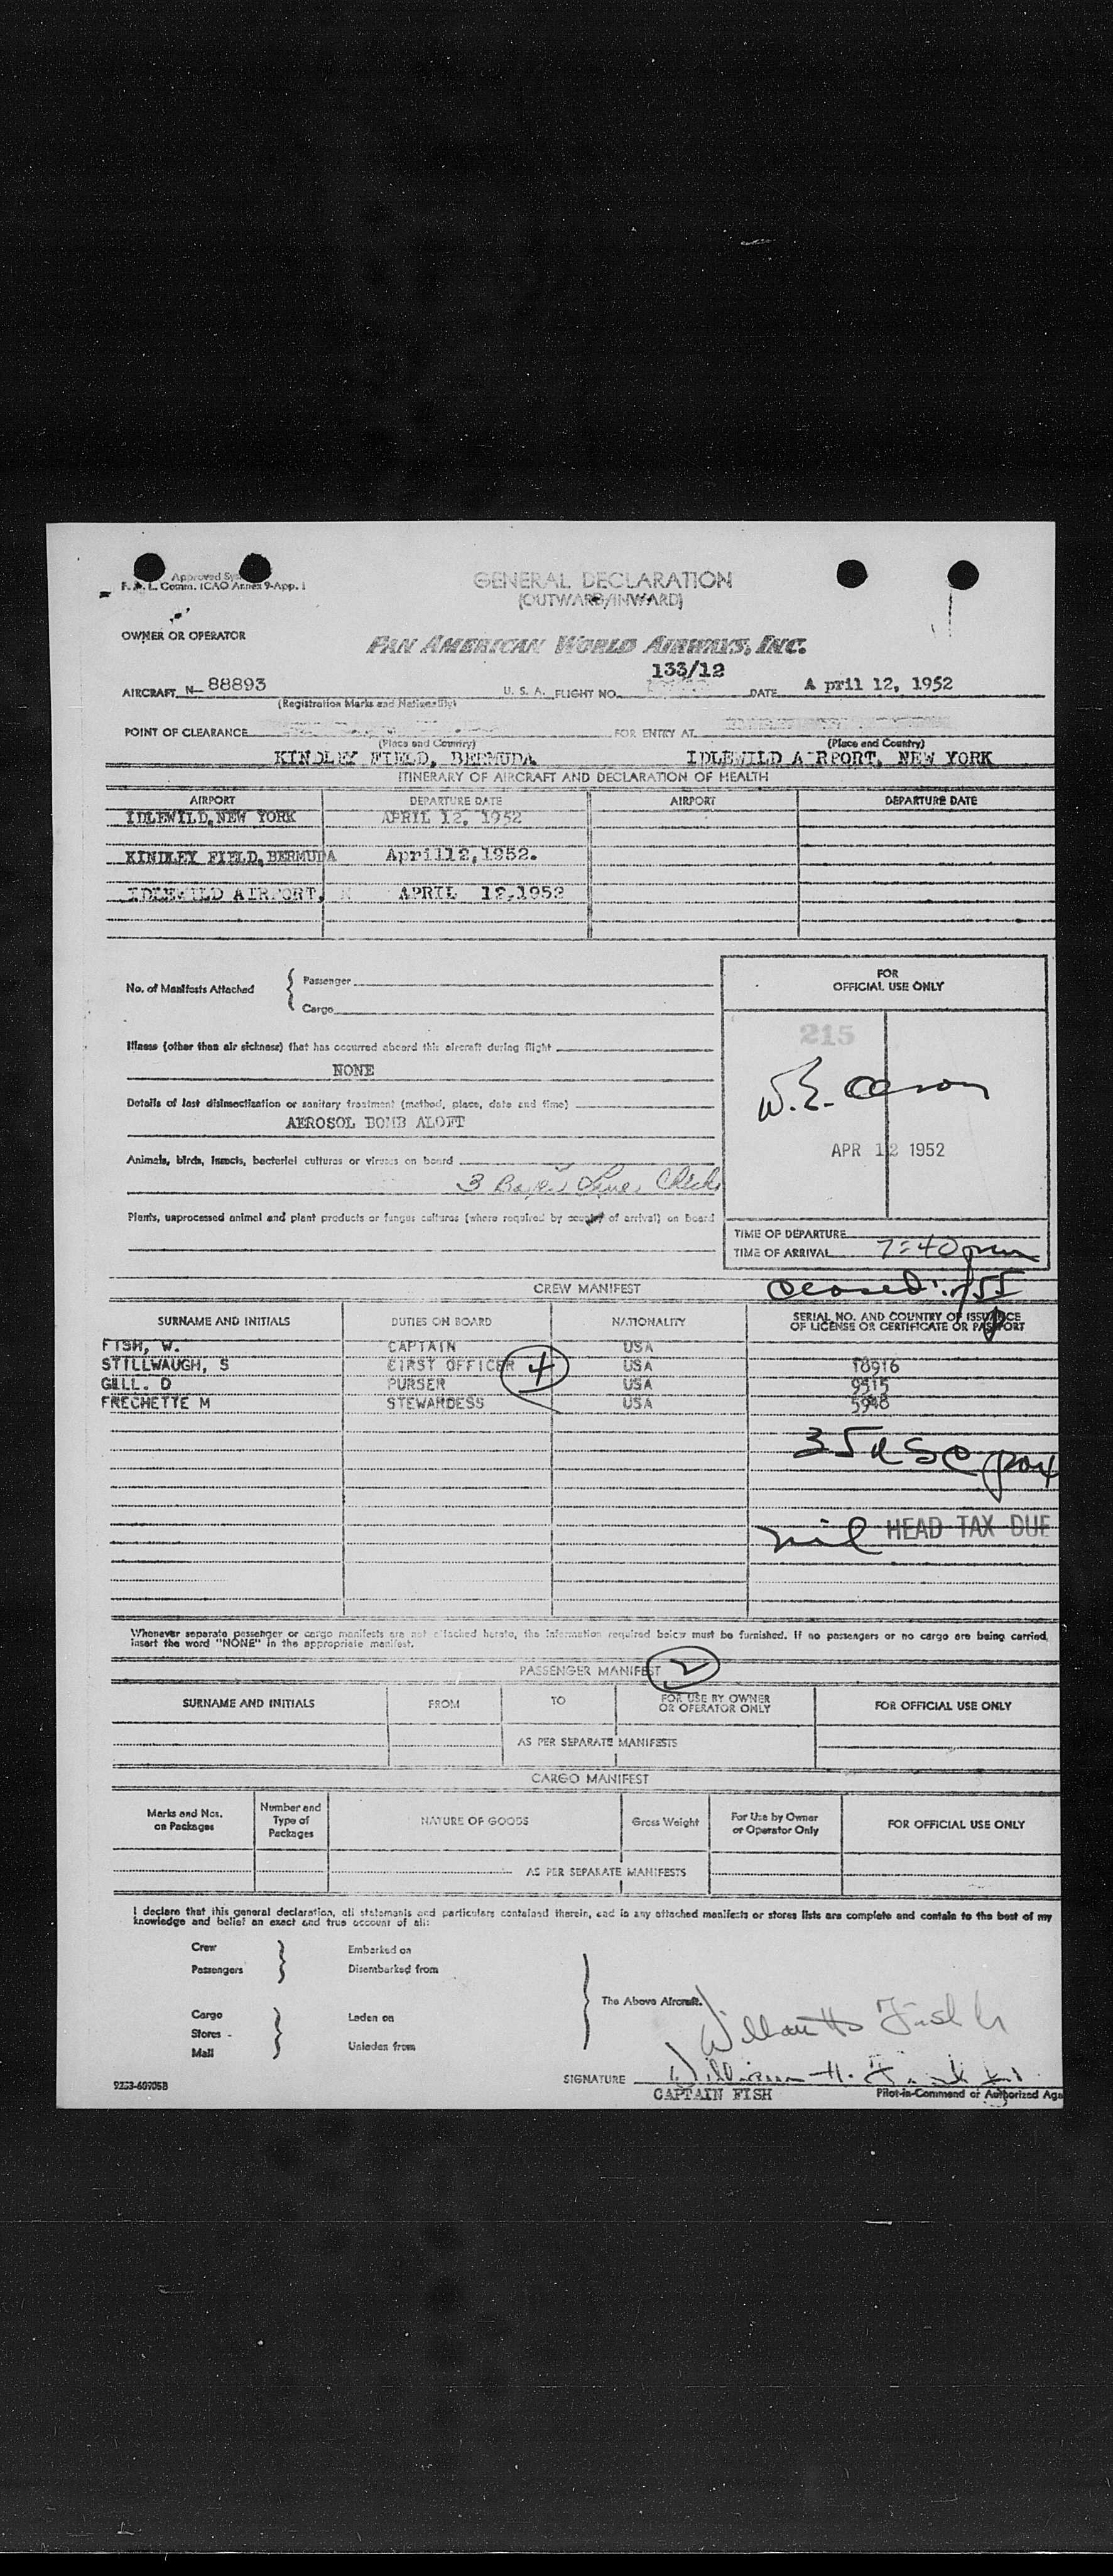 Approved
F. A. L. Comm. ICAO Annex 9-App. 1
GENERAL DECLARATION
(OUTWARD/INWARD)
OWNER OR OPERATOR
PAN AMERICAN WORLD AIRWAYS, INC.
133/12
AIRCRAFT N- 88893 U. S. A. FLIGHT NO. DATE April 12, 1952
(Registration Marks and Nationality)
POINT OF CLEARANCE FOR ENTRY AT
(Place and Country) (Place and Country)
KINDLEY FIELD, BERMUDA IDLEWILD A RPORT, NEW YORK
ITINERARY OF AIRCRAFT AND DECLARATION OF HEALTH
AIRPORT DEPARTURE DATE AIRPORT DEPARTURE DATE
IDLEWILD, NEW YORK APRIL 12, 1952
KINDLEY FIELD, BERMUDA April12,1952.
IDLEWILD AIRPORT, APRIL 12,1952
FOR
OFFICIAL USE ONLY
No. of Manifests Attached
Passenger
Cargo
215
Illness (other than air sickness) that has occurred aboard this aircraft during flight
NONE
Details of last disinsectization or sanitary treatment (method, place, date and time)
AEROSOL BOMB ALOFT
APR 12 1952
Animals, birds, insects, bacterial cultures or viruses on board
3
Plants, unprocessed animal and plant products or fungus cultures (where required by country of arrival) on board
TIME OF DEPARTURE
TIME OF ARRIVAL 7:40 pm
CREW MANIFEST
SURNAME AND INITIALS DUTIES ON BOARD NATIONALITY SERIAL NO. AND COUNTRY OF ISSUANCE
OF LICENSE OR CERTIFICATE OR PASSPORT
FISH, W. CAPTAIN USA
STILLWAUGH, S FIRST OFFICER USA 18916
GILL. D PURSER USA 9515
FRECHETTE M STEWARDESS USA 5948
4
nil HEAD TAX DUE
Whenever separate passenger or cargo manifests are not attached hereto, the information required below must be furnished. If no passengers or no cargo are being carried,
insert the word "NONE" in the appropriate manifest.
PASSENGER MANIFEST 2
SURNAME AND INITIALS FROM TO FOR USE BY OWNER
OR OPERATOR ONLY FOR OFFICIAL USE ONLY
AS PER SEPARATE MANIFESTS
CARGO MANIFEST
Marks and Nos.
on Packages Number and
Type of
Packages NATURE OF GOODS Gross Weight For Use by Owner
or Operator Only FOR OFFICIAL USE ONLY
AS PER SEPARATE MANIFESTS
I declare that this general declaration, all statements and particulars contained therein, and in any attached manifests or stores lists are complete and contain to the best of my
knowledge and belief an exact and true account of all:
Crew Embarked on
Passengers Disembarked from
The Above Aircraft.
Cargo Laden on
Stores -
Mail Unladen from
9233-60705B
SIGNATURE William H. Fish
CAPTAIN FISH Pilot-in-Command or Authorized Age